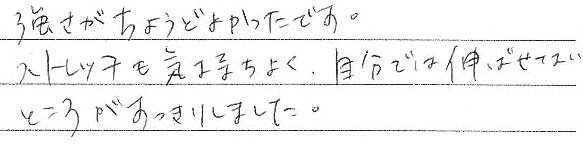 強さがちょうどよかったです。
ストレッチも気持ちよく、自分では伸ばせてない
ところがすっきりしました。